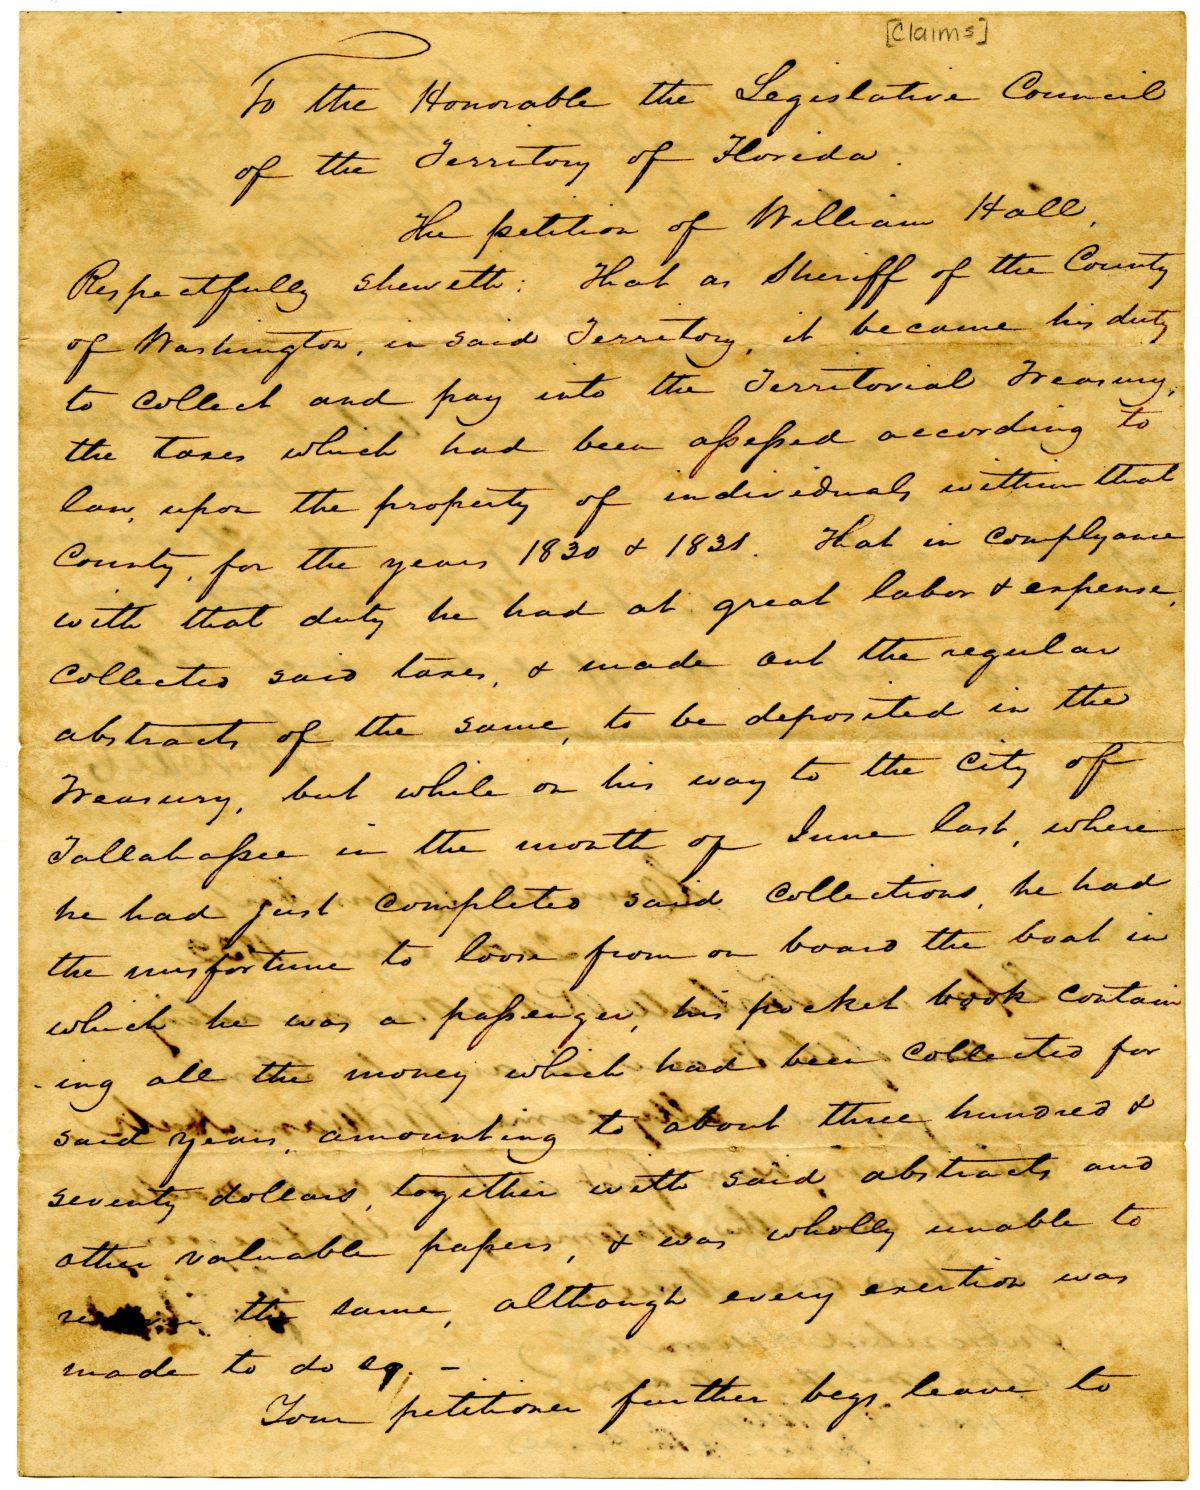 [Claims]
To the Honorable the Legislative Council
of the Territory of Florida.
The petition of William Hall,
Respectfully sheweth: That as Sheriff of the County
of Washington, in said Territory, it became his duty
to collect and pay into the Territorial Treasury,
the taxes which had been assessed according to
law, upon the property of individuals within that
County, for the years 1830 & 1831. That in complyance
with that duty he had at great labor & expense,
collected said taxes, & made out the regular
abstracts of the same, to be deposited in the
Treasury, but while on his way to the City of
Tallahassee in the month of June last, where
he had just completed said collections, he had
the misfortune to loose from on board the boat in
which he was a passenger, his pocket book contain
-ing all the money which had been collected for
said years, amounting to about three hundred &
seventy dollars, together with said abstracts and
other valuable papers, & was wholly unable to
the same, although every exertion was
made to do so. -
Your petitioner further begs leave to